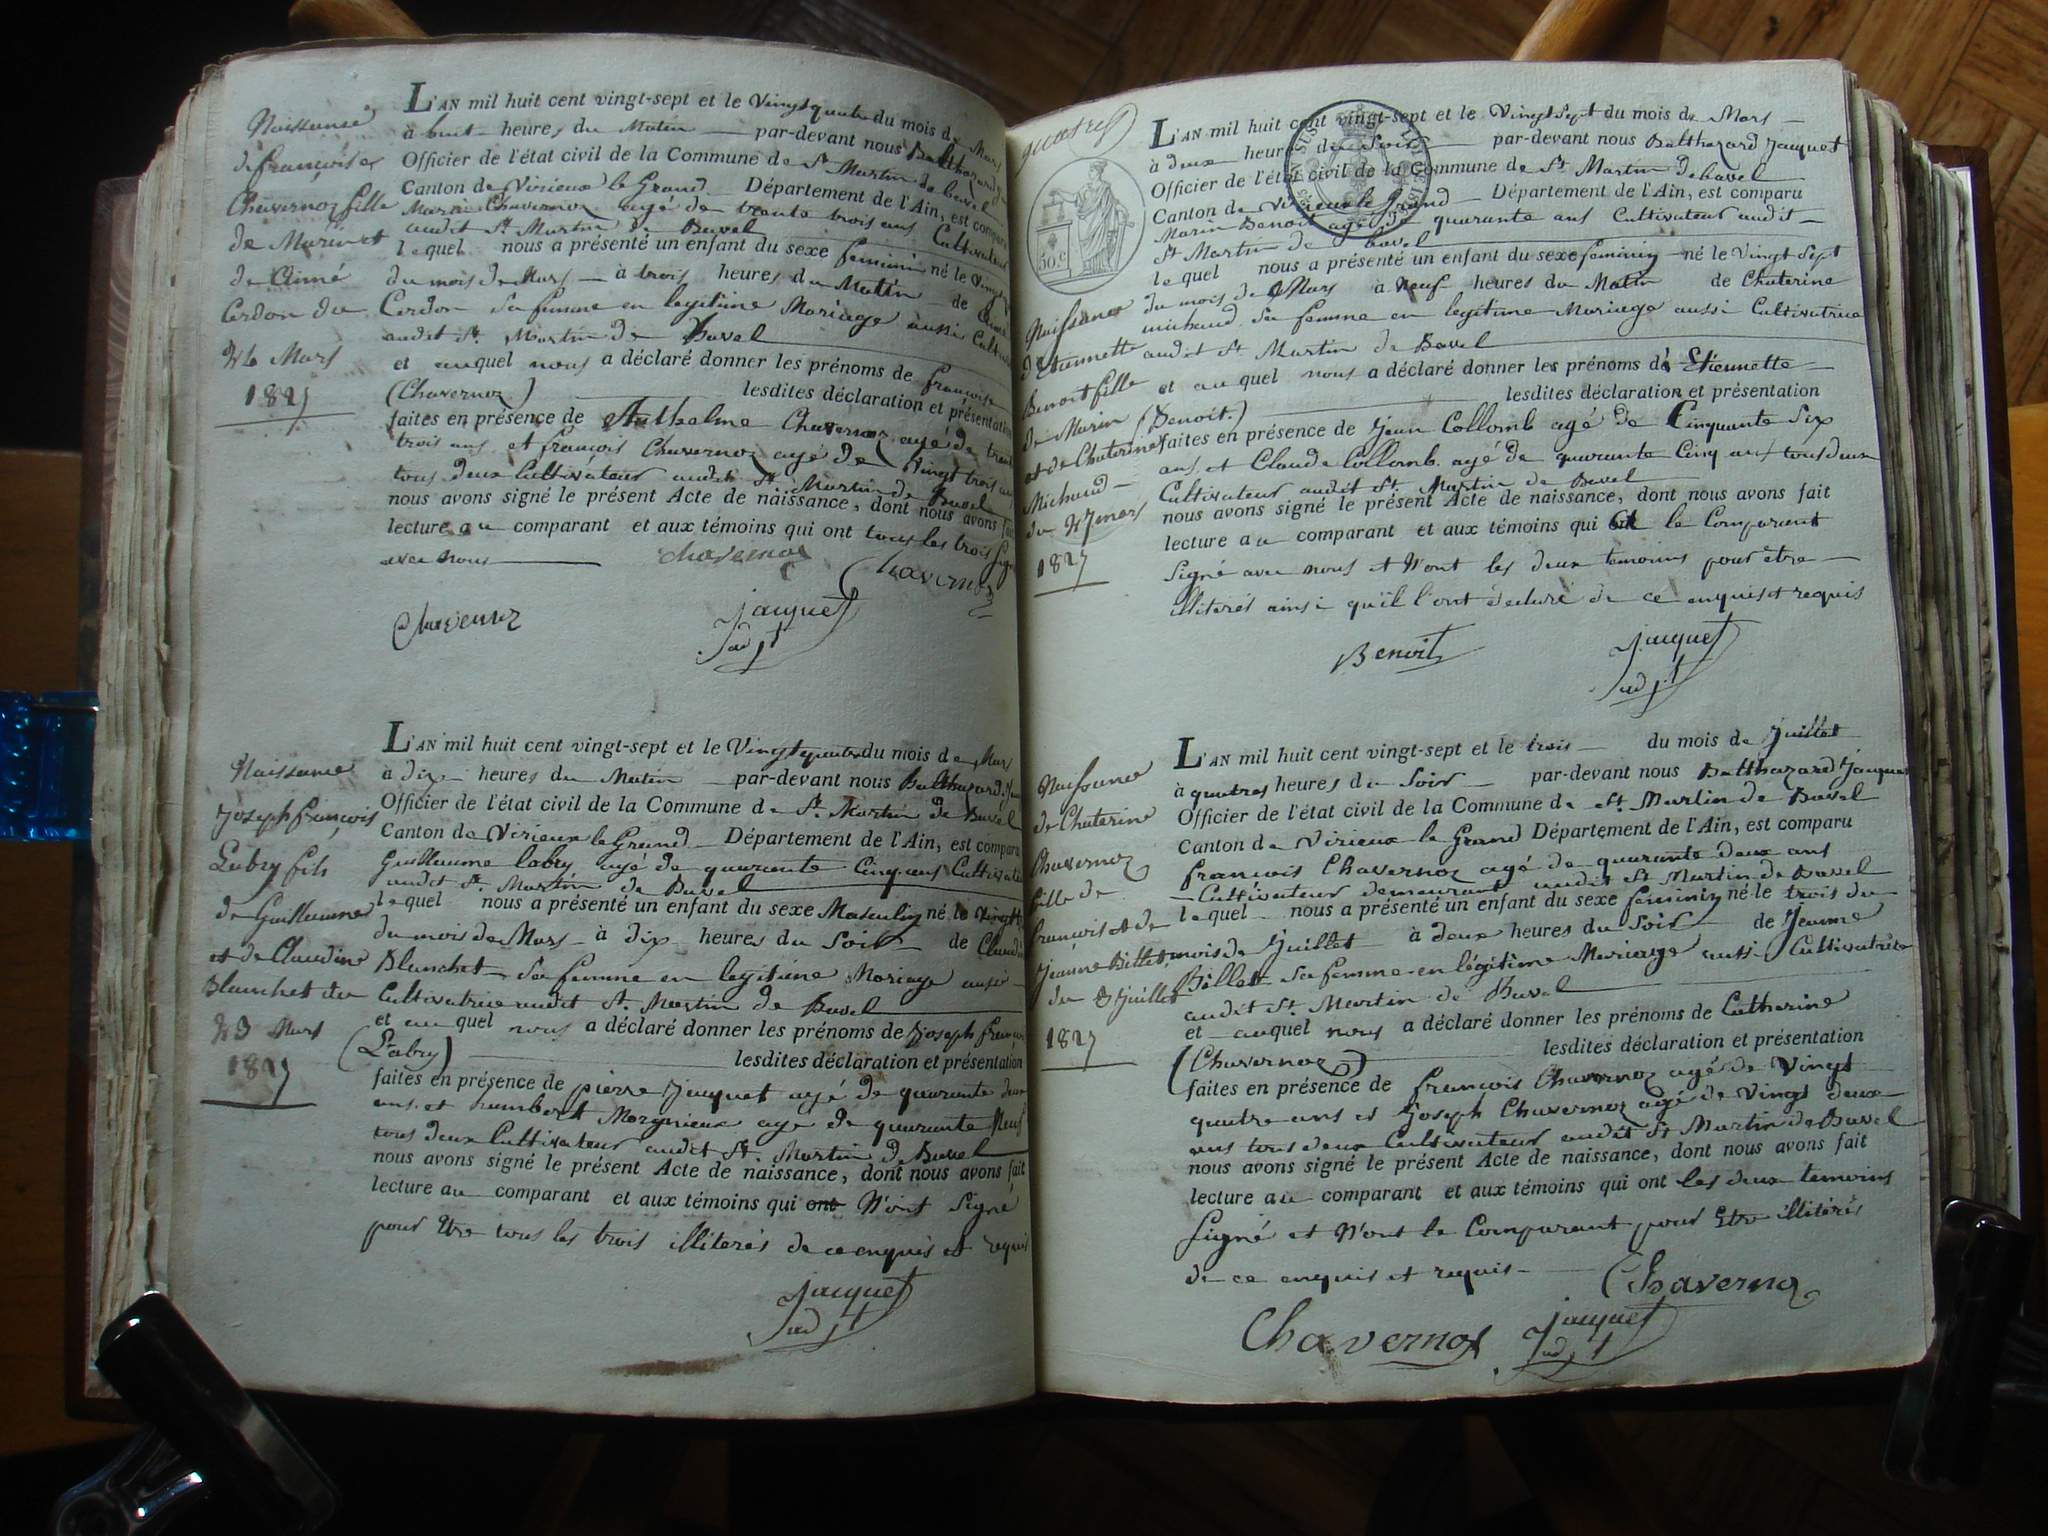 Naissance
de françoise
Chavernoz fille
de Marin et
de Aimé
Cerdon du
26 Mars
1827
L'AN mil huit cent vingt-sept et le Vingt du mois de Mars
à huit heures du Matin par-devant nous Balthazard
Officier de l'état civil de la Commune de St Martin de bavel
Canton de Virieux le Grand Département de l'Ain, est comparu
Marin Chavernoz agé de trente trois ans Cultivateur
audit St Martin de Bavel
le quel nous a présenté un enfant du sexe feminin né le
du mois de Mars à trois heures du Matin de
Cerdon sa femme en legitime Mariage aussi
audit St Martin de Bavel
et auquel nous a déclaré donner les prénoms de françoise
(Chavernoz) lesdites déclaration et présentation
faites en présence de Anthelme Chavernoz agé de
trois ans et françois Chavernoz agé de Vingt trois
tous deux Cultivateur audit St Martin de Bavel
nous avons signé le présent Acte de naissance, dont nous avons fait
lecture au comparant et aux témoins qui ont tous les trois signé
avec nous
Chavernoz
Chavernoz
Chavernoz
Jacquet
adjt
Naissance
Joseph françois
Labry fils
de Guillaume
et de Claudine
Blanchet du
23 Mars
1827
L'AN mil huit cent vingt-sept et le Vingt du mois de Mars
à dix heures du Matin par-devant nous Balthazard
Officier de l'état civil de la Commune de St Martin de Bavel
Canton de Virieux le Grand Département de l'Ain, est comparu
Guillaume labry agé de quarante Cinq ans Cultivateur
audit St Martin de Bavel
le quel nous a présenté un enfant du sexe Masculin né le vingt
du mois de Mars à dix heures du Soir de
Blanchet sa femme en legitime Mariage aussi
Cultivatrice audit St Martin de Bavel
et au quel nous a déclaré donner les prénoms de Joseph françois
(Labry) lesdites déclaration et présentation
faites en présence de pierre Jacquet agé de quarante
ans et humbert Morgnieux agé de quarante Neuf
tous deux Cultivateur audit St Martin de Bavel
nous avons signé le présent Acte de naissance, dont nous avons fait
lecture au comparant et aux témoins qui ont N'ont Signé
pour Etre tous les trois illiterés de ce enquis et requis
Jacquet
adjt
quatre
50.c
Naissance
d'Etiennette
Benoit fille
de Marin
et de Chaterine
Michaud
du 27 mars
1827
L'AN mil huit cent vingt-sept et le Vingt Sept du mois de Mars
à deux heures du Soir par-devant nous Balthazard Jacquet
Officier de l'état civil de la Commune de St Martin de bavel
Canton de Virieux le Grand Département de l'Ain, est comparu
Marin Benoit agé de quarante ans Cultivateur audit
St Martin de bavel
le quel nous a présenté un enfant du sexe feminin né le Vingt Sept
du mois de Mars à Neuf heures du Matin de Chaterine
michaud sa femme en legitime Mariage aussi Cultivatrice
audit St Martin de Bavel
et au quel nous a déclaré donner les prénoms de Etiennette
(Benoit) lesdites déclaration et présentation
faites en présence de Jean Collomb agé de Cinquante Six
ans et Claude Collomb agé de quarante Cinq ans tous deux
Cultivateur audit St Martin de Bavel
nous avons signé le présent Acte de naissance, dont nous avons fait
lecture au comparant et aux témoins qui le Comparant
Signé avec nous et N'ont les deux temoins pour être
illiterés ainsi qu'il l'ont déclaré de ce enquis et requis
Benoit
Jacquet
adjt
Naissance
de Chaterine
Chavernoz
fille de
françois et de
Jeanne Billet
du 3 Juillet
1827
L'AN mil huit cent vingt-sept et le trois du mois de Juillet
à quatres heures du Soir par-devant nous Balthazard Jacquet
Officier de l'état civil de la Commune de St Martin de Bavel
Canton de Virieux le Grand Département de l'Ain, est comparu
françois Chavernoz agé de quarante deux ans
Cultivateur demeurant audit St Martin de Bavel
le quel nous a présenté un enfant du sexe feminin né le trois du
mois de Juillet à deux heures du Soir de Jeanne
Billet sa femme en légitime Mariage aussi Cultivatrice
audit St Martin de Bavel
et auquel nous a déclaré donner les prénoms de Catherine
(Chavernoz) lesdites déclaration et présentation
faites en présence de françois Chavernoz agé de Vingt
quatre ans et Joseph Chavernoz agé de Vingt deux
ans tous deux Cultivateur audit St Martin de Bavel
nous avons signé le présent Acte de naissance, dont nous avons fait
lecture au comparant et aux témoins qui ont les deux temoins
Signé et N'ont le Comparant pour Etre illiterés
de ce enquis et requis
Chavernoz
Chavernoz
Jacquet
adjt